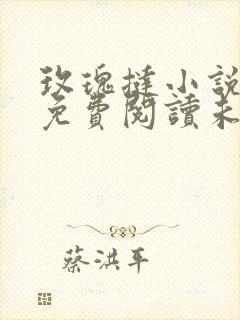 玫瑰撻小說
免費閱讀未
蔡洪平